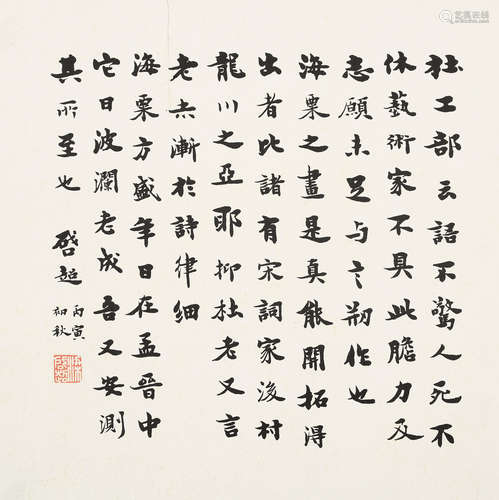 杜工部云語不驚人死不
休藝術家不具此膽力及
志願未足与言刱作也
海粟之畫是真能開拓得
出者比諸有宋詞家後村
龍川之亞耶抑杜老又言
老去漸於詩律細
海粟方盛年日在孟晉中
它日波瀾老成吾又安測
其所至也 啓超
丙寅
初秋